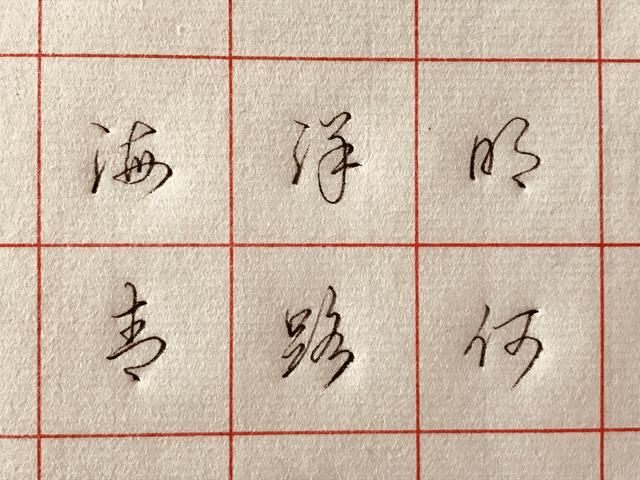 海洋明
青路何